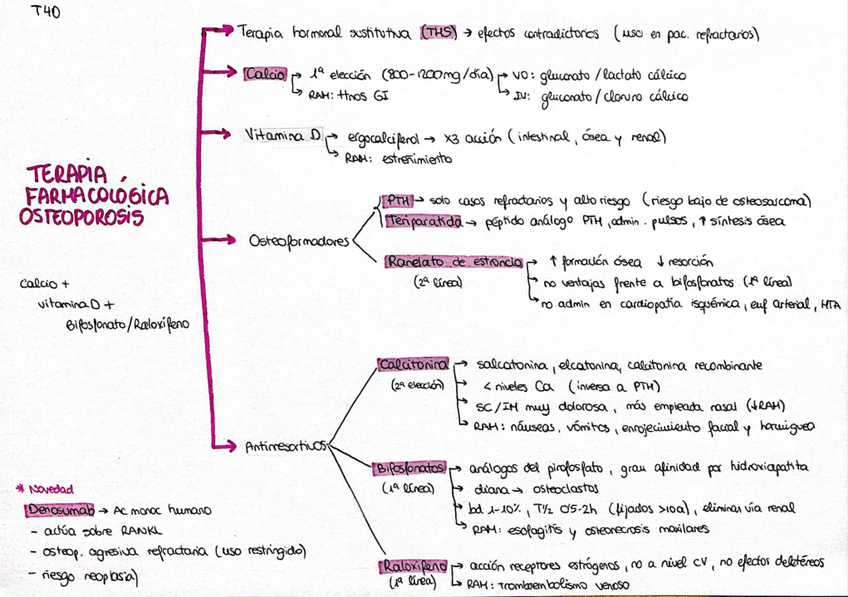 T40
Terapia hormonal sustitutiva (THS) → efectos contradictorios (uso en pac. refractarios)
Calcio → 1ª elección (800-1200mg/día) → VO: gluconato/lactato cálcico
→ RAM: ttnos GI → IV: gluconato/cloruro cálcico
Vitamina D → ergocalciferol → x3 acción (intestinal, ósea y renal)
→ RAM: estreñimiento
TERAPIA
FARMACOLOGICA
OSTEOPOROSIS
Calcio +
vitamina D +
Bifosfonato/Raloxifeno
Osteoformadores
PTH → solo casos refractarios y alto riesgo (riesgo bajo de osteosarcoma)
Teriparatida → péptido análogo PTH, admin. pulsos, ↑ síntesis ósea
Ranelato de estroncio → ↑ formación ósea ↓ resorción
(2ª línea) → no ventajas frente a bifosfonatos (1ª línea)
→ no admin en cardiopatía isquémica, enf arterial, HTA
Antirresortivos
Calcitonina → salcatonina, elcatonina, calcitonina recombinante
(2ª elección) → < niveles Ca (inversa a PTH)
→ SC/IM muy dolorosa, más empleada nasal (↓RAM)
→ RAM: náuseas, vómitos, enrojecimiento facial y hormigueo
Bifosfonatos → análogos del pirofosfato, gran afinidad por hidroxiapatita
(1ª línea) → diana → osteoclastos
→ bd 1-10%, T½ 0'5-2h (fijados >10a), eliminas vía renal
→ RAM: esofagitis y osteonecrosis maxilares
Raloxifeno → acción receptores estrógenos, no a nivel CV, no efectos deletéreos
(1ª línea) → RAM: tromboembolismo venoso
* Novedad
Denosumab → Ac monoc humano
- actúa sobre RANKL
- osteop. agresiva refractaria (uso restringido)
- riesgo neoplasia)